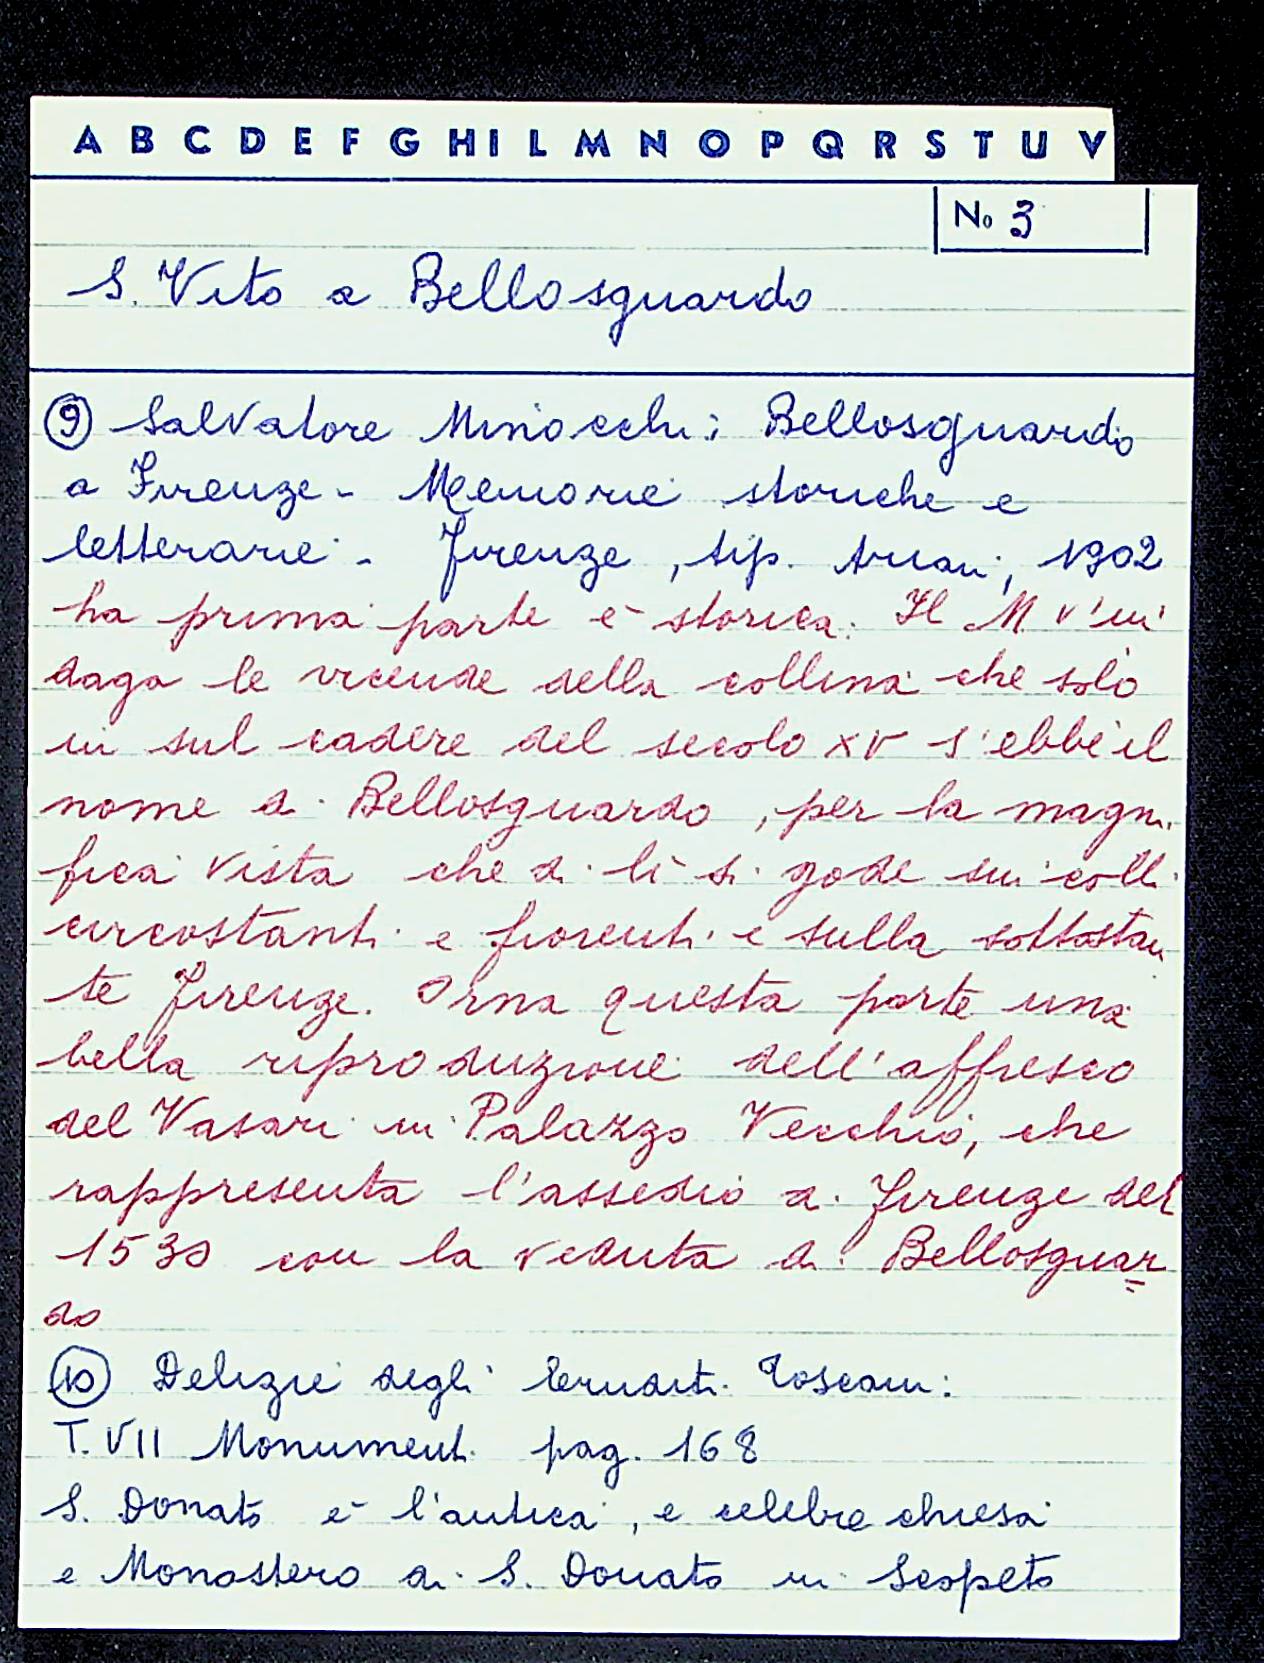 A B C D E F G H I L M N O P Q R S T U V
No 3
S. Vito a Bellosguardo
⑨ Salvatore Minocchi: Bellosguardo
a Firenze - Memorie storiche e
letterarie - Firenze, tip. Ariani, 1902
La prima parte è storica. Il M v'in
daga le vicende della collina che solo
in sul cadere del secolo XV s'ebbe il
nome di Bellosguardo, per la magni
fica vista che di lì si gode sui colli
circostanti e fiorenti e sulla sottostan
te Firenze. Orna questa parte una
bella riproduzione dell'affresco
del Vasari in Palazzo Vecchio, che
rappresenta l'assedio di Firenze del
1530 con la veduta di Bellosguar=
do
⑩ Delizie degli Eruditi Toscani:
T. VII Monumenti pag. 168
S. Donato è l'antica, e celebre chiesa
e Monastero di S. Donato in Scopeto